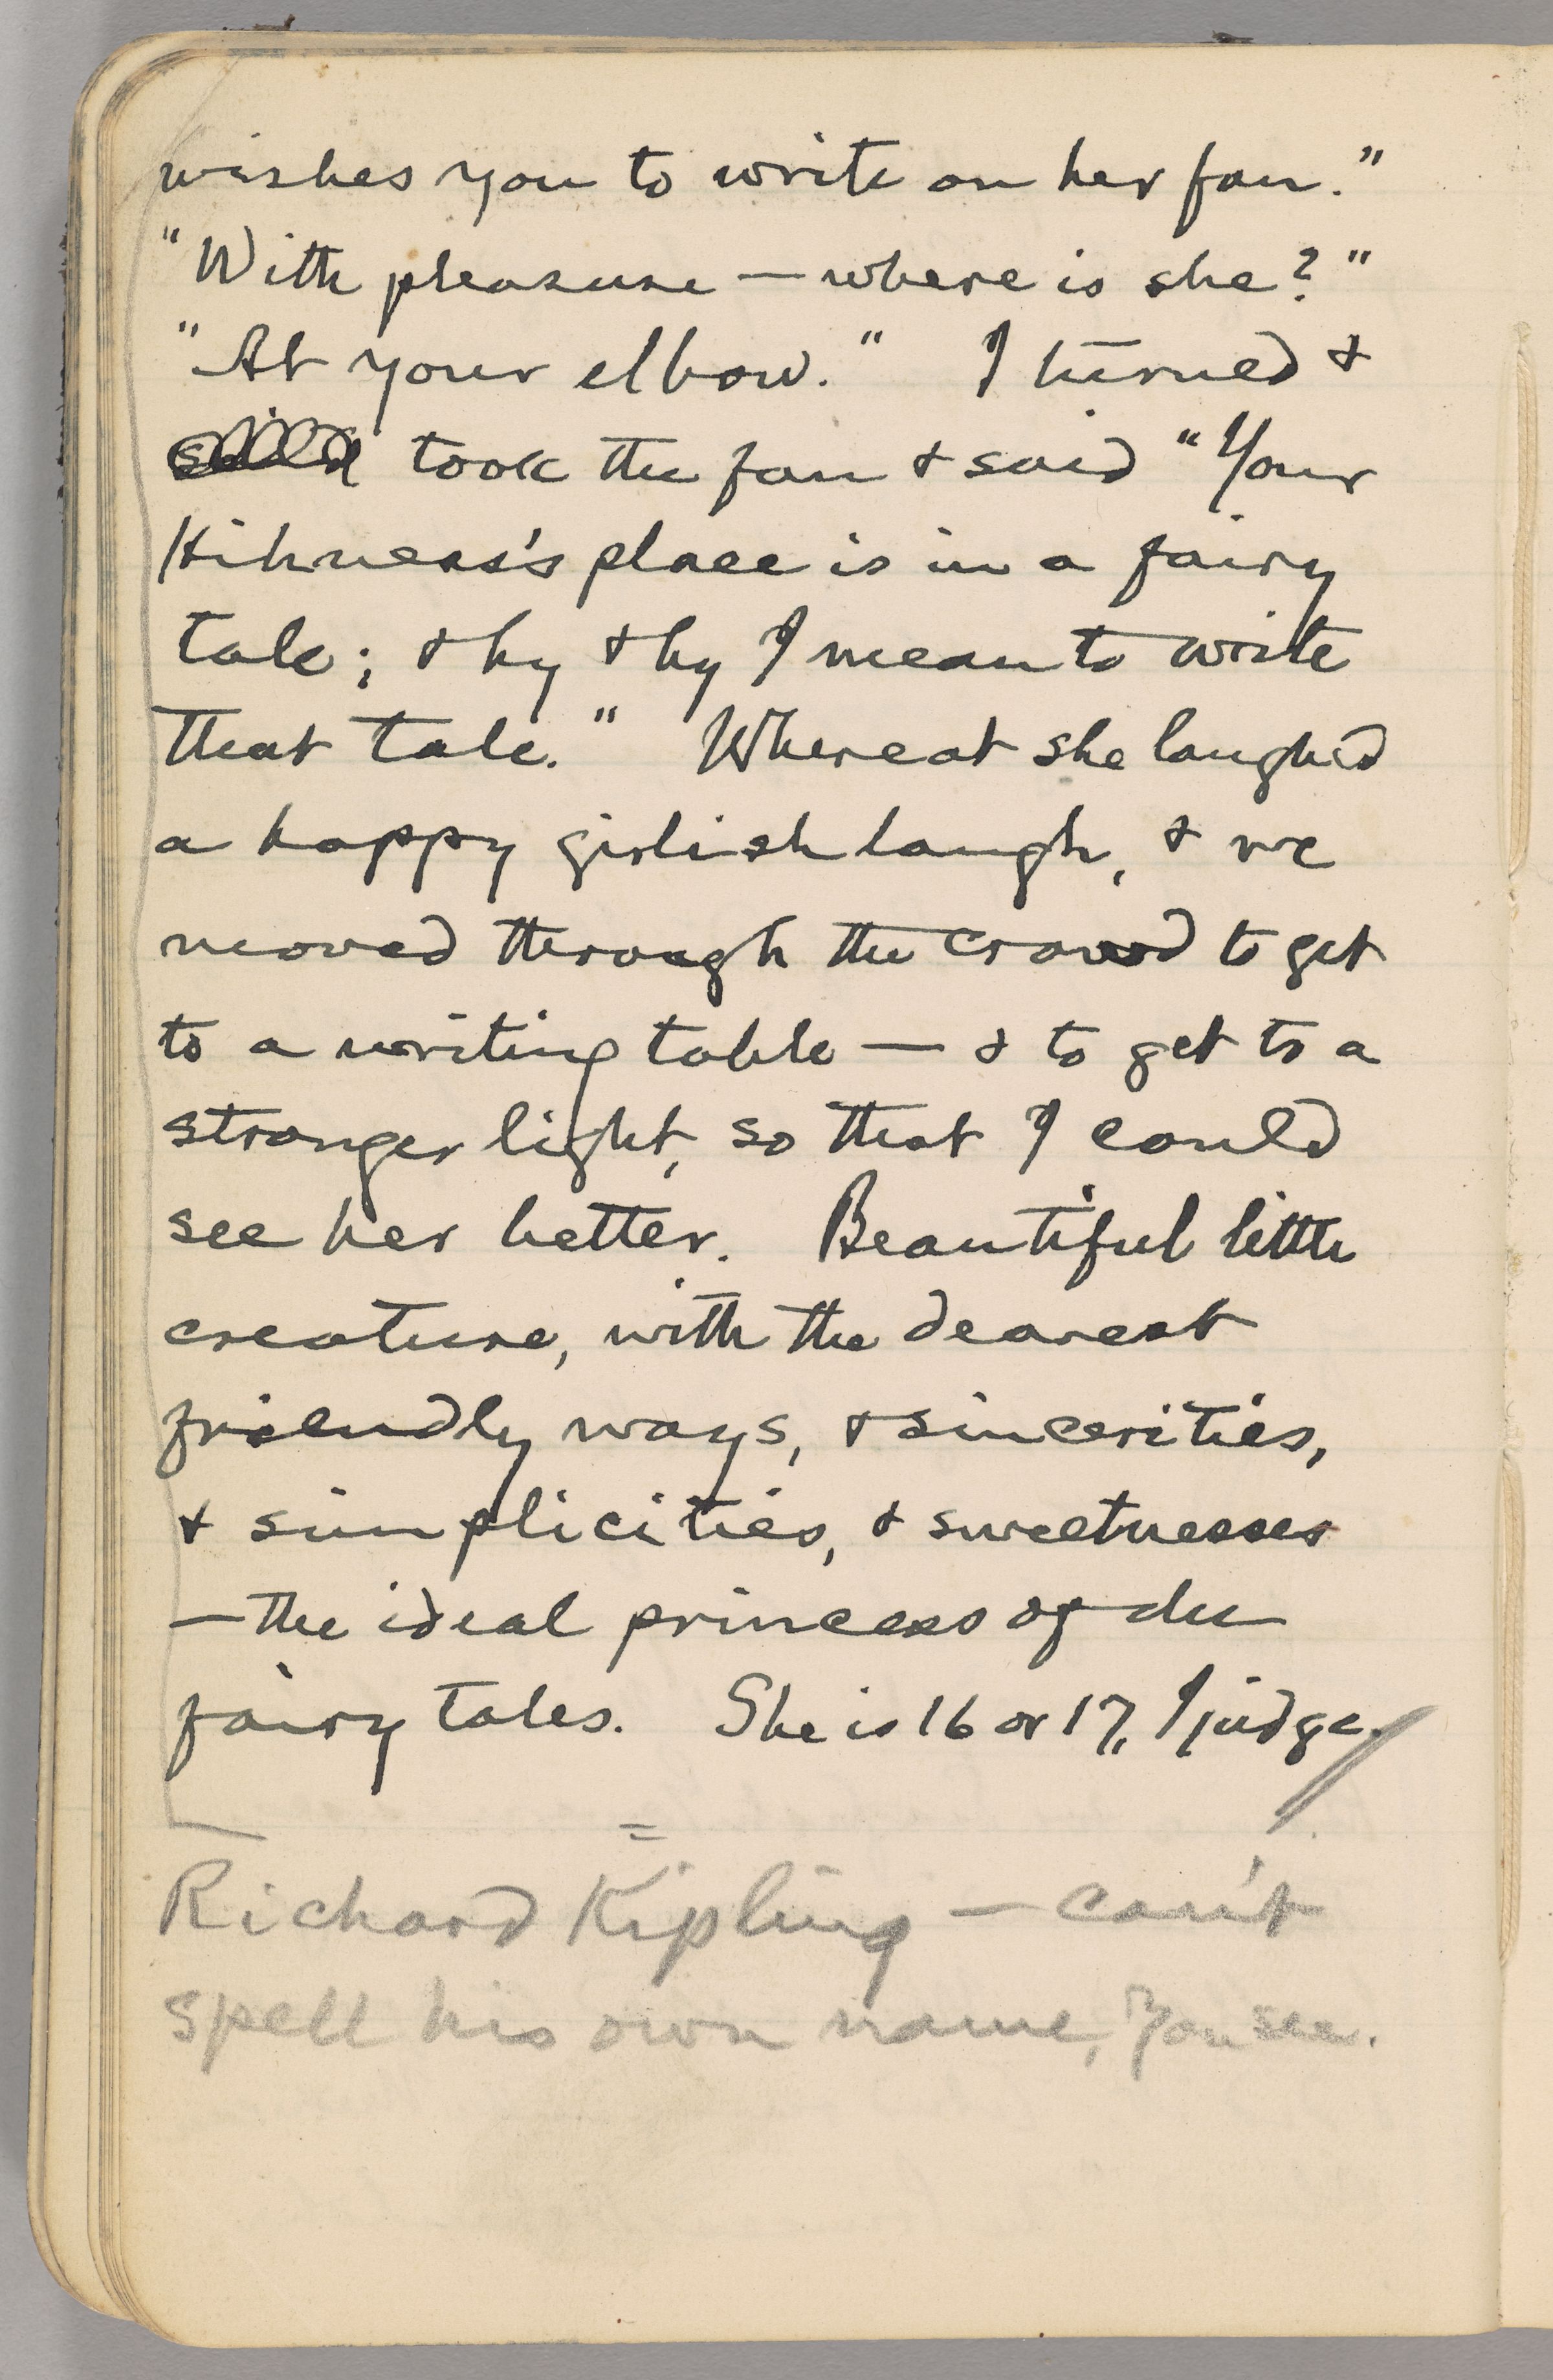 wishes you to write on her fan."
"With pleasure — where is she?"
"At your elbow." I turned &
said took the fan & said "Your
Hihness's place is in a fairy
tale; & by & by I mean to write
that tale." Whereat she laughed
a happy girlish laugh, & we
moved through the crowd to get
to a writing table — & to get to a
stronger light, so that I could
see her better. Beautiful little
creature, with the dearest
friendly ways, & sincerities,
& simplicities, & sweetnesses
— the ideal princess of the
fairy tales. She is 16 or 17, I judge.
=
Richard Kipling — can't
spell his own name, you see.